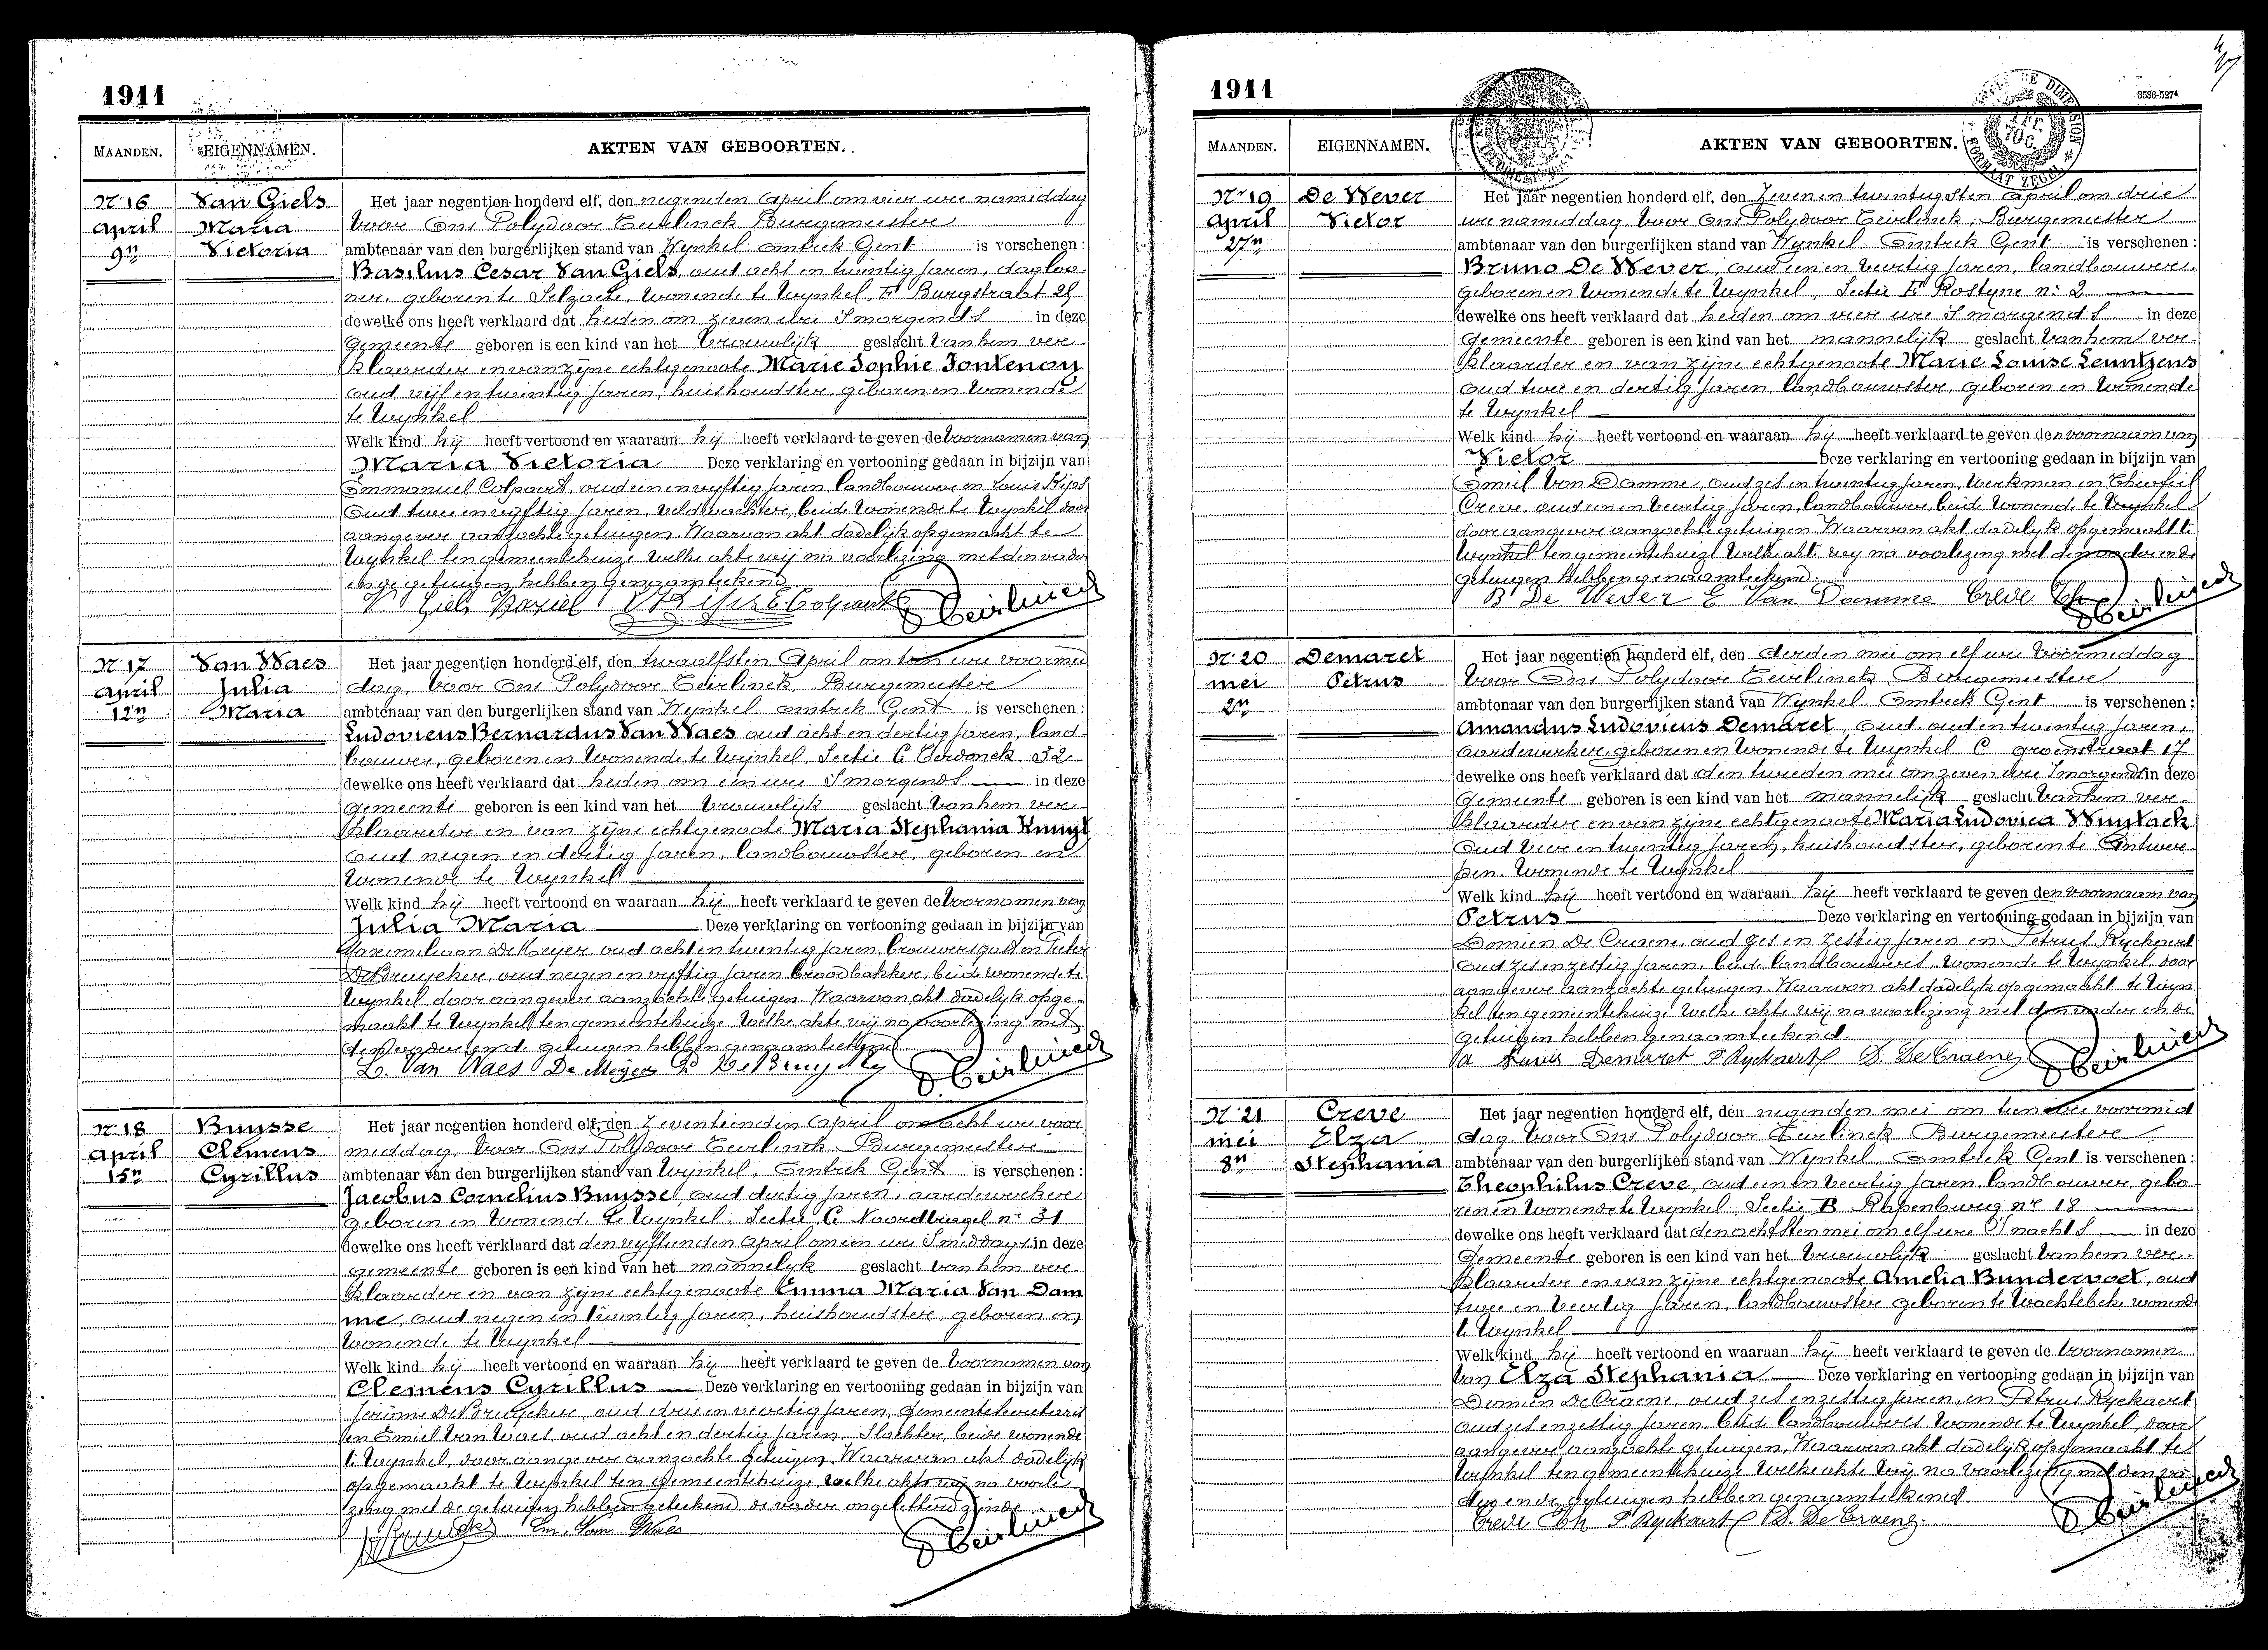 1911
MAANDEN. EIGENNAMEN. AKTEN VAN GEBOORTEN.
Nr 16 Van Giels Het jaar negentien honderd elf, den negenden April om vier ure namiddag
April Maria voor Ons Polydoor Teirlinck Burgemeester
9n Victoria ambtenaar van den burgerlijken stand van Wynkel Omtrek Gent is verschenen:
Basilius Cesar Van Giels, oud acht en twintig jaren, dagloo-
ner, geboren te Selzaete, wonende te Wynkel, Burgstraat
dewelke ons heeft verklaard dat heden om zeven ure 's morgends in deze
gemeente geboren is een kind van het vrouwelijk geslacht van hem ver-
klaarder en van zijne echtgenoote Marie Sophie Fontenoy
oud vijf en twintig jaren, huishoudster, geboren en wonende
te Wynkel
Welk kind hij heeft vertoond en waaraan hij heeft verklaard te geven de voornamen van
Maria Victoria Deze verklaring en vertooning gedaan in bijzijn van
Emmanuel Colpaert, oud een en vyftig jaren, landbouwer en Louis
oud twee en vyftig jaren, veldwachter, beide wonende te Wynkel door
aangever aanzochte getuigen. Waarvan akt dadelijk opgemaakt te
Wynkel ten gemeentehuize welke akte wij na voorlezing met den vader
en de getuigen hebben genaamteekend
V Giels Baziel E Colpaert P Teirlinck
Nr 17 Van Waes Het jaar negentien honderd elf, den twaalfsten April om tien ure voormid
April Julia dag, voor Ons Polydoor Teirlinck, Burgemeester
12n Maria ambtenaar van den burgerlijken stand van Wynkel Omtrek Gent is verschenen:
Ludovicus Bernardus Van Waes oud acht en dertig jaren, land
bouwer, geboren en wonende te Wynkel, Sectie C Eerdonck 32
dewelke ons heeft verklaard dat heden om een ure 's morgends in deze
gemeente geboren is een kind van het vrouwelijk geslacht van hem ver-
klaarder en van zijne echtgenoote Maria Stephania Kuuyt
oud negen en dertig jaren, landbouwster, geboren en
wonende te Wynkel
Welk kind hij heeft vertoond en waaraan hij heeft verklaard te geven de voornamen van
Julia Maria Deze verklaring en vertooning gedaan in bijzijn van
Maximiliaan De Meyer, oud acht en twintig jaren, brouwersgast en Pieter
De Bruycker, oud negen en vyftig jaren broodbakker, beide wonende te
Wynkel door aangever aanzochte getuigen. Waarvan akt dadelijk opge-
maakt te Wynkel ten gemeentehuize, welke akte wij na voorlezing met
den vader en de getuigen hebben genaamteekend
L. Van Waes De Meyer P De Bruycker P Teirlinck
Nr 18 Buysse Het jaar negentien honderd elf, den zeventienden April om acht ure voor
April Clemens middag, voor Ons Polydoor Teirlinck Burgemeester
15n Cyrillus ambtenaar van den burgerlijken stand van Wynkel, Omtrek Gent is verschenen:
Jacobus Cornelius Buysse, oud dertig jaren, aardewerker
geboren en wonende te Wynkel, Sectie C Noordbriegel nr 31
dewelke ons heeft verklaard dat den vyftienden April om een ure 's middags in deze
gemeente geboren is een kind van het mannelyk geslacht van hem ver-
klaarder en van zijne echtgenoote Emma Maria Van Dam
me, oud negen en twintig jaren, huishoudster, geboren en
wonende te Wynkel
Welk kind hij heeft vertoond en waaraan hij heeft verklaard te geven de voornamen van
Clemens Cyrillus Deze verklaring en vertooning gedaan in bijzijn van
Jerome De Bruycker, oud drie en veertig jaren, Gemeentesecretaris
en Emiel Van Waes oud acht en dertig jaren, slachter, beide wonende
te Wynkel, door aangever aanzochte getuigen. Waarvan akt dadelijk
opgemaakt te Wynkel ten gemeentehuize, welke akte wij na voorle-
zing met de getuigen hebben geteekend de vader ongeletterd zijnde
Em. Van Waes P Teirlinck
1911
3586-527
MAANDEN. EIGENNAMEN. AKTEN VAN GEBOORTEN.
Nr 19 De Wever Het jaar negentien honderd elf, den zeven en twintigsten April om drie
April Victor ure namiddag, voor Ons Polydoor Teirlinck, Burgemeester
27n ambtenaar van den burgerlijken stand van Wynkel Omtrek Gent is verschenen:
Bruno De Wever, oud een en veertig jaren, landbouwer,
geboren en wonende te Wynkel, Sectie E Rostyne nr 2
dewelke ons heeft verklaard dat heden om vier ure 's morgends in deze
gemeente geboren is een kind van het mannelijk geslacht van hem ver-
klaarder en van zijne echtgenoote Marie Louise Lenntjens
oud twee en dertig jaren, landbouwster, geboren en wonende
te Wynkel
Welk kind hij heeft vertoond en waaraan hij heeft verklaard te geven den voornaam van
Victor Deze verklaring en vertooning gedaan in bijzijn van
Emiel Van Damme, oud zes en twintig jaren, werkman en Theofiel
Creve, oud een en veertig jaren, landbouwer, beide wonende te Wynkel
door aangever aanzochte getuigen. Waarvan akt dadelyk opgemaakt te
Wynkel ten gemeentehuize welke akt wy na voorlezing met den vader en de
getuigen hebben genaamteekend.
B De Wever E Van Damme Creve Th P Teirlinck
Nr 20 Demaret Het jaar negentien honderd elf, den derden mei om elf ure voormiddag
mei Petrus voor Ons Polydoor Teirlinck, Burgemeester
2n ambtenaar van den burgerlijken stand van Wynkel Omtrek Gent is verschenen:
Amandus Ludovicus Demaret, oud en twintig jaren,
aardewerker, geboren en wonende te Wynkel C Groenstraat 17
dewelke ons heeft verklaard dat den tweeden mei om zeven ure 's morgends in deze
gemeente geboren is een kind van het mannelijk geslacht van hem ver-
klaarder en van zijne echtgenoote Maria Ludovica Wuytack
oud vier en twintig jaren, huishoudster, geboren te Antwer-
pen, wonende te Wynkel
Welk kind hij heeft vertoond en waaraan hij heeft verklaard te geven den voornaam van
Petrus Deze verklaring en vertooning gedaan in bijzijn van
Domien De Craene, oud zes en zestig jaren en Petrus Ryckaert
oud zes en zestig jaren, beide landbouwers, wonende te Wynkel, door
aangever aanzochte getuigen. Waarvan akt dadelijk opgemaakt te Wyn-
kel ten gemeentehuize welke akte wij na voorlezing met den vader en de
getuigen hebben genaamteekend.
Louis Demaret P Ryckaert D. De Craene P Teirlinck
Nr 21 Creve Het jaar negentien honderd elf, den negenden mei om tien ure voormid
mei Elza dag voor Ons Polydoor Teirlinck Burgemeester
8n Stephania ambtenaar van den burgerlijken stand van Wynkel, Omtrek Gent is verschenen:
Theophilus Creve, oud een en veertig jaren, landbouwer, gebo-
ren en wonende te Wynkel, Sectie B Rapenburg nr 18
dewelke ons heeft verklaard dat den achtsten mei om elf ure 's nachts in deze
Gemeente geboren is een kind van het vrouwelijk geslacht van hem ver-
klaarder en van zijne echtgenoote Amelia Bundervoet, oud
twee en veertig jaren, landbouwster geboren te Wachtebeke wonende
te Wynkel
Welk kind hij heeft vertoond en waaraan hij heeft verklaard te geven de voornamen
van Elza Stephania Deze verklaring en vertooning gedaan in bijzijn van
Domien De Craene, oud zes en zestig jaren, en Petrus Ryckaert
oud zes en zestig jaren, beide landbouwers wonende te Wynkel, door
aangever aanzochte getuigen. Waarvan akt dadelijk opgemaakt te
Wynkel ten gemeentehuize welke akte wij na voorlezing met den va-
der en de getuigen hebben genaamteekend
Creve Th P Ryckaert D. De Craene P Teirlinck